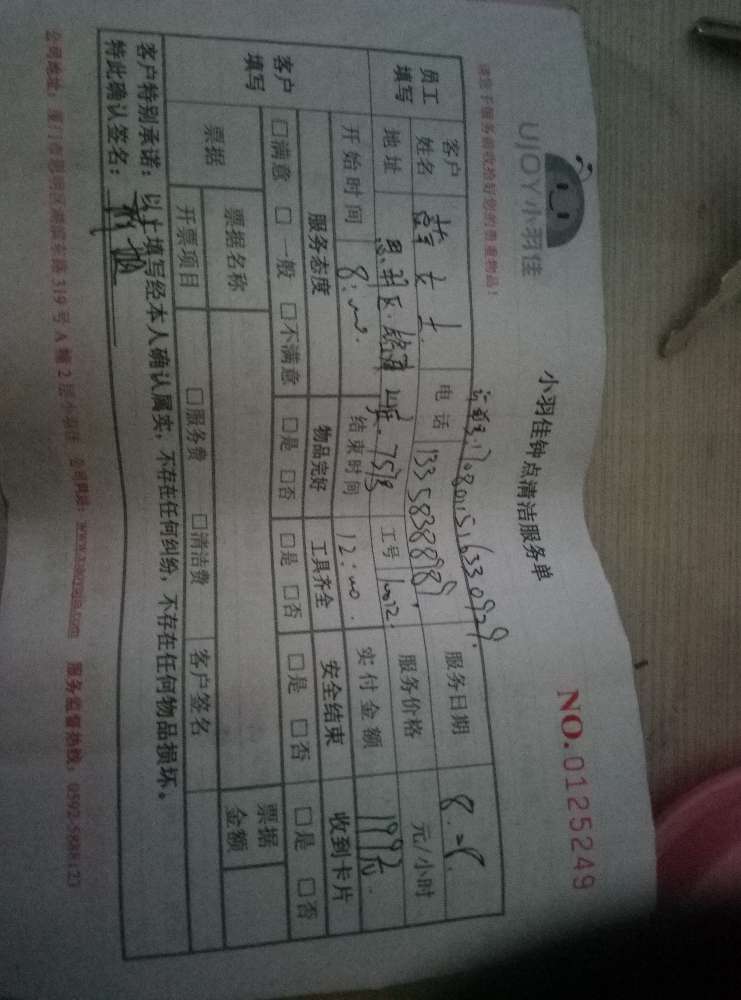 UJOY小羽佳
小羽佳钟点清洁服务单
NO.0125249
请您于服务前收拾好您的贵重物品！
170801516330929
员工填写
客户姓名 女士 电话 13358388989 服务日期 8.28
地址 思明区 757号 工号 服务价格 元/小时
开始时间 8:00 结束时间 12:00 实付金额 199元
客户填写
服务态度 物品完好 工具齐全 安全结束 收到卡片
□满意 □一般 □不满意 □是 □否 □是 □否 □是 □否 □是 □否
票据 票据名称 票据金额
开票项目 □服务费 □清洁费 客户签名
客户特别承诺：以上填写经本人确认属实，不存在任何纠纷，不存在任何物品损坏。
特此确认签名：
公司地址：厦门市思明区湖滨东路319号A幢2层小羽佳 公司网址：www.xiaoyujia.com 服务监督热线：0592-5888123